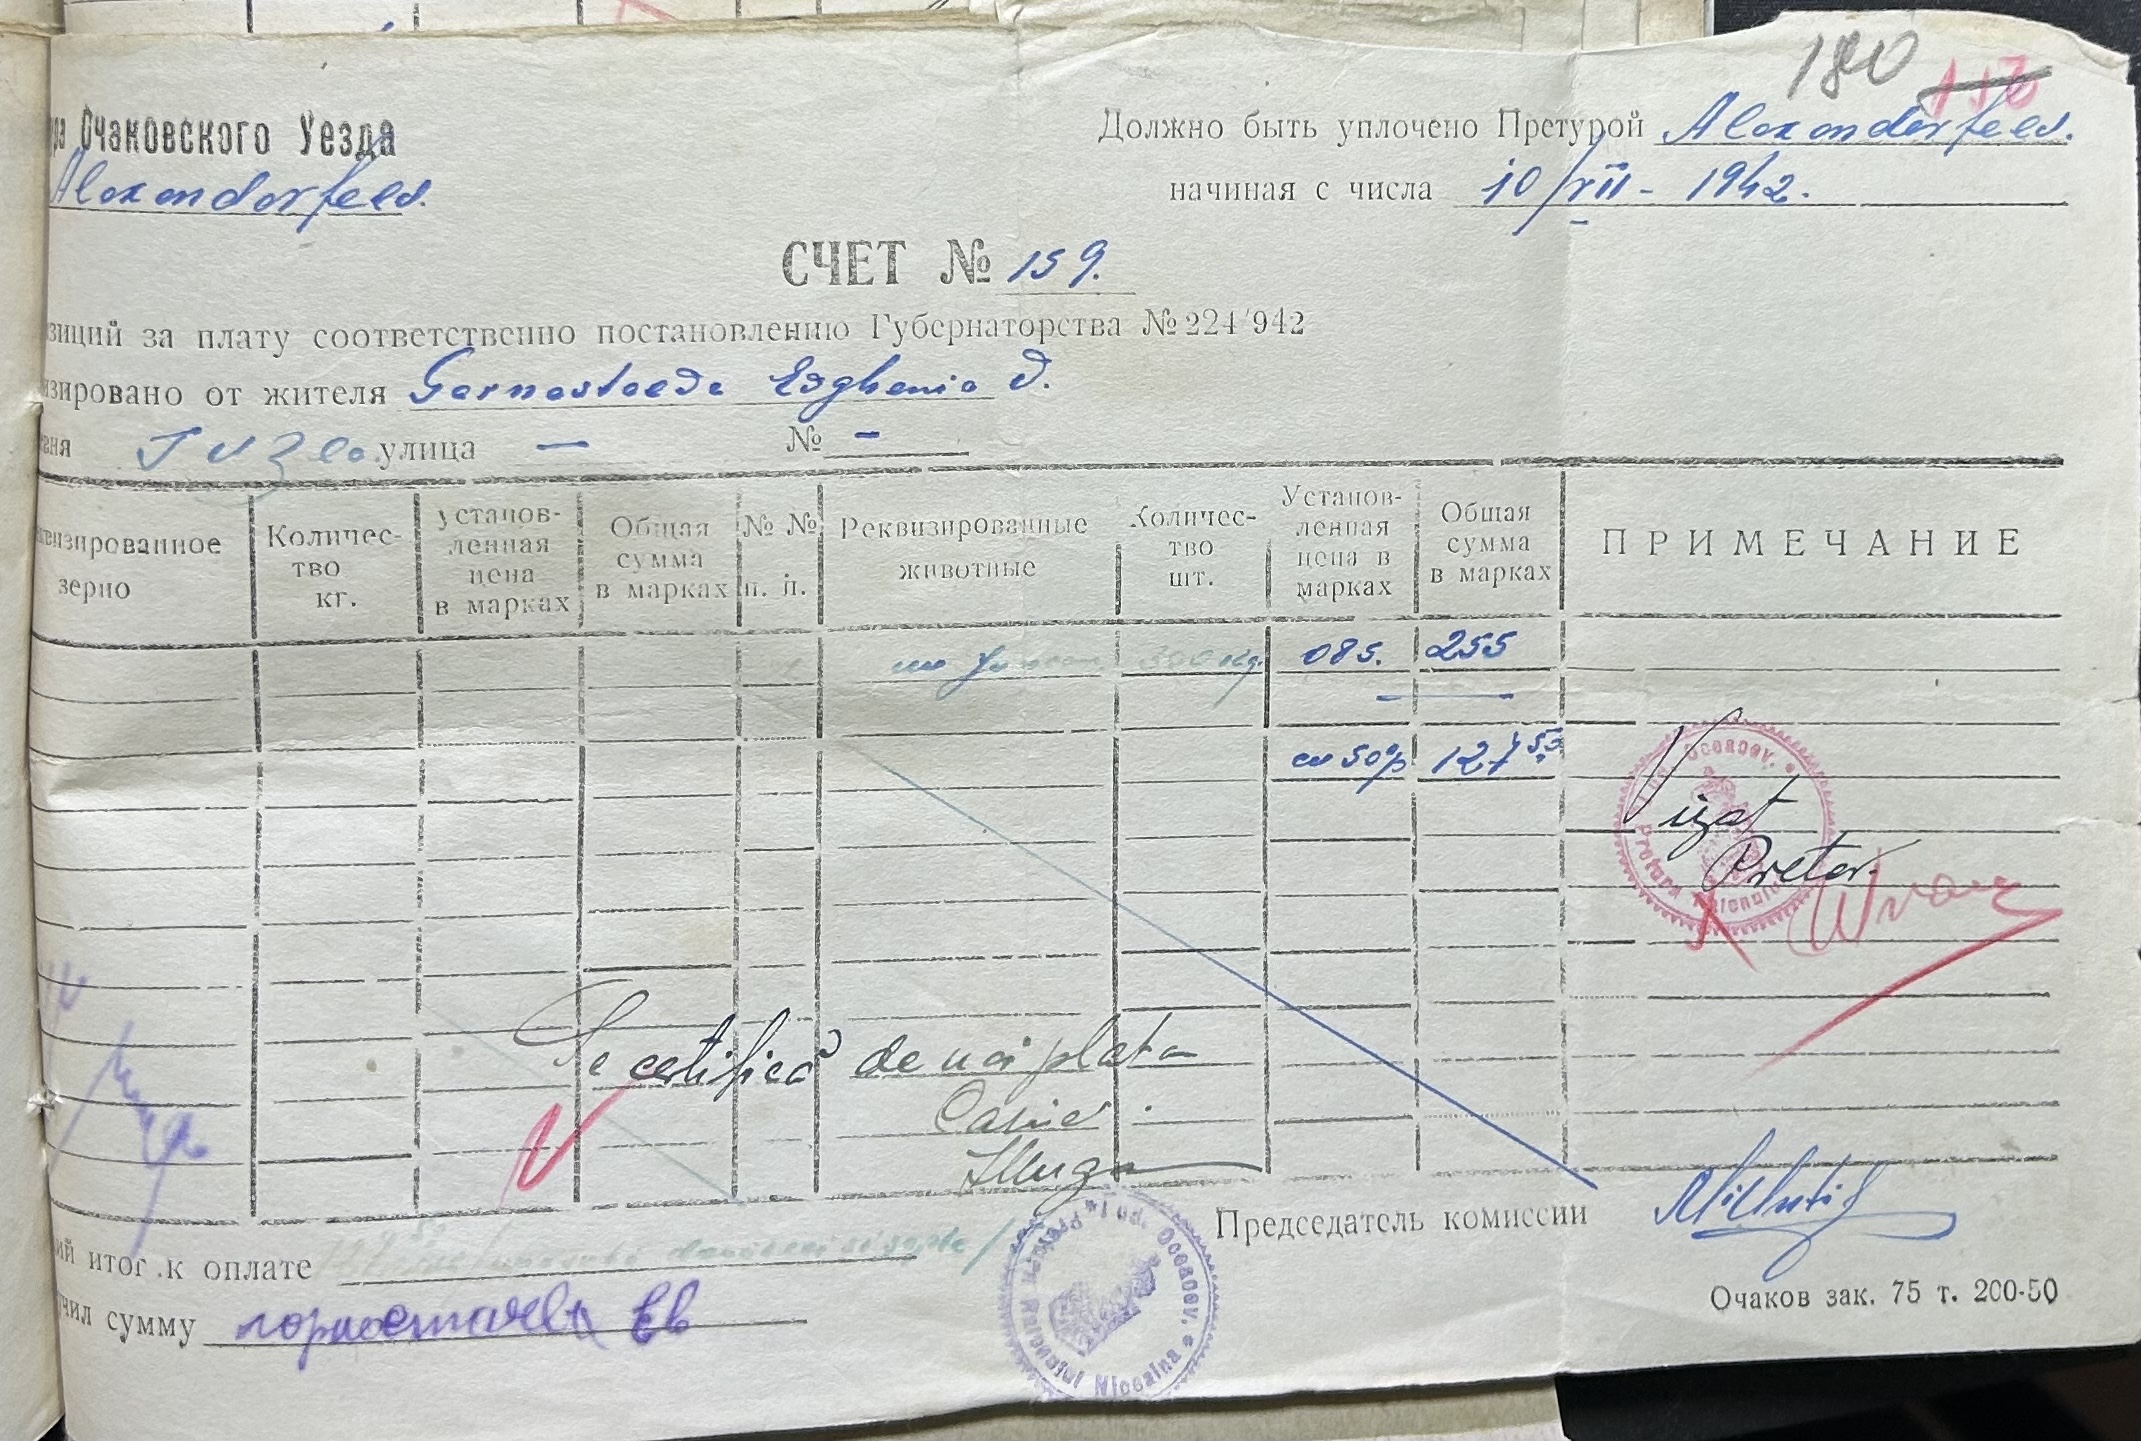 180 113
ра Очаковского Уезда
Alexandorfeld.
Должно быть уплочено Претурой Alexandorfeld.
начиная с числа 10/VII - 1942.
СЧЕТ № 159.
зиций за плату соответственно постановлению Губернаторства № 224'942
изировано от жителя Gornostaeva Evghenia D.
вня Tuzla улица — № -
квизированное зерно
Количес-тво кг.
установ-ленная цена в марках
Общая сумма в марках
№ № п. п.
Реквизированные животные
Количес-тво шт.
Установ-ленная цена в марках
Общая сумма в марках
ПРИМЕЧАНИЕ
300 kg. 085. 255
cu 50% 127 50
Vizat
Pretor
Pretura Raionului
Jud. Oceacov.
Se certifică de noi plata
Casier
Председатель комиссии
ий итог к оплате
чил сумму горностаева Ев
Pretura Raionului Nicoaina
Oceacov.
Очаков зак. 75 т. 200-50